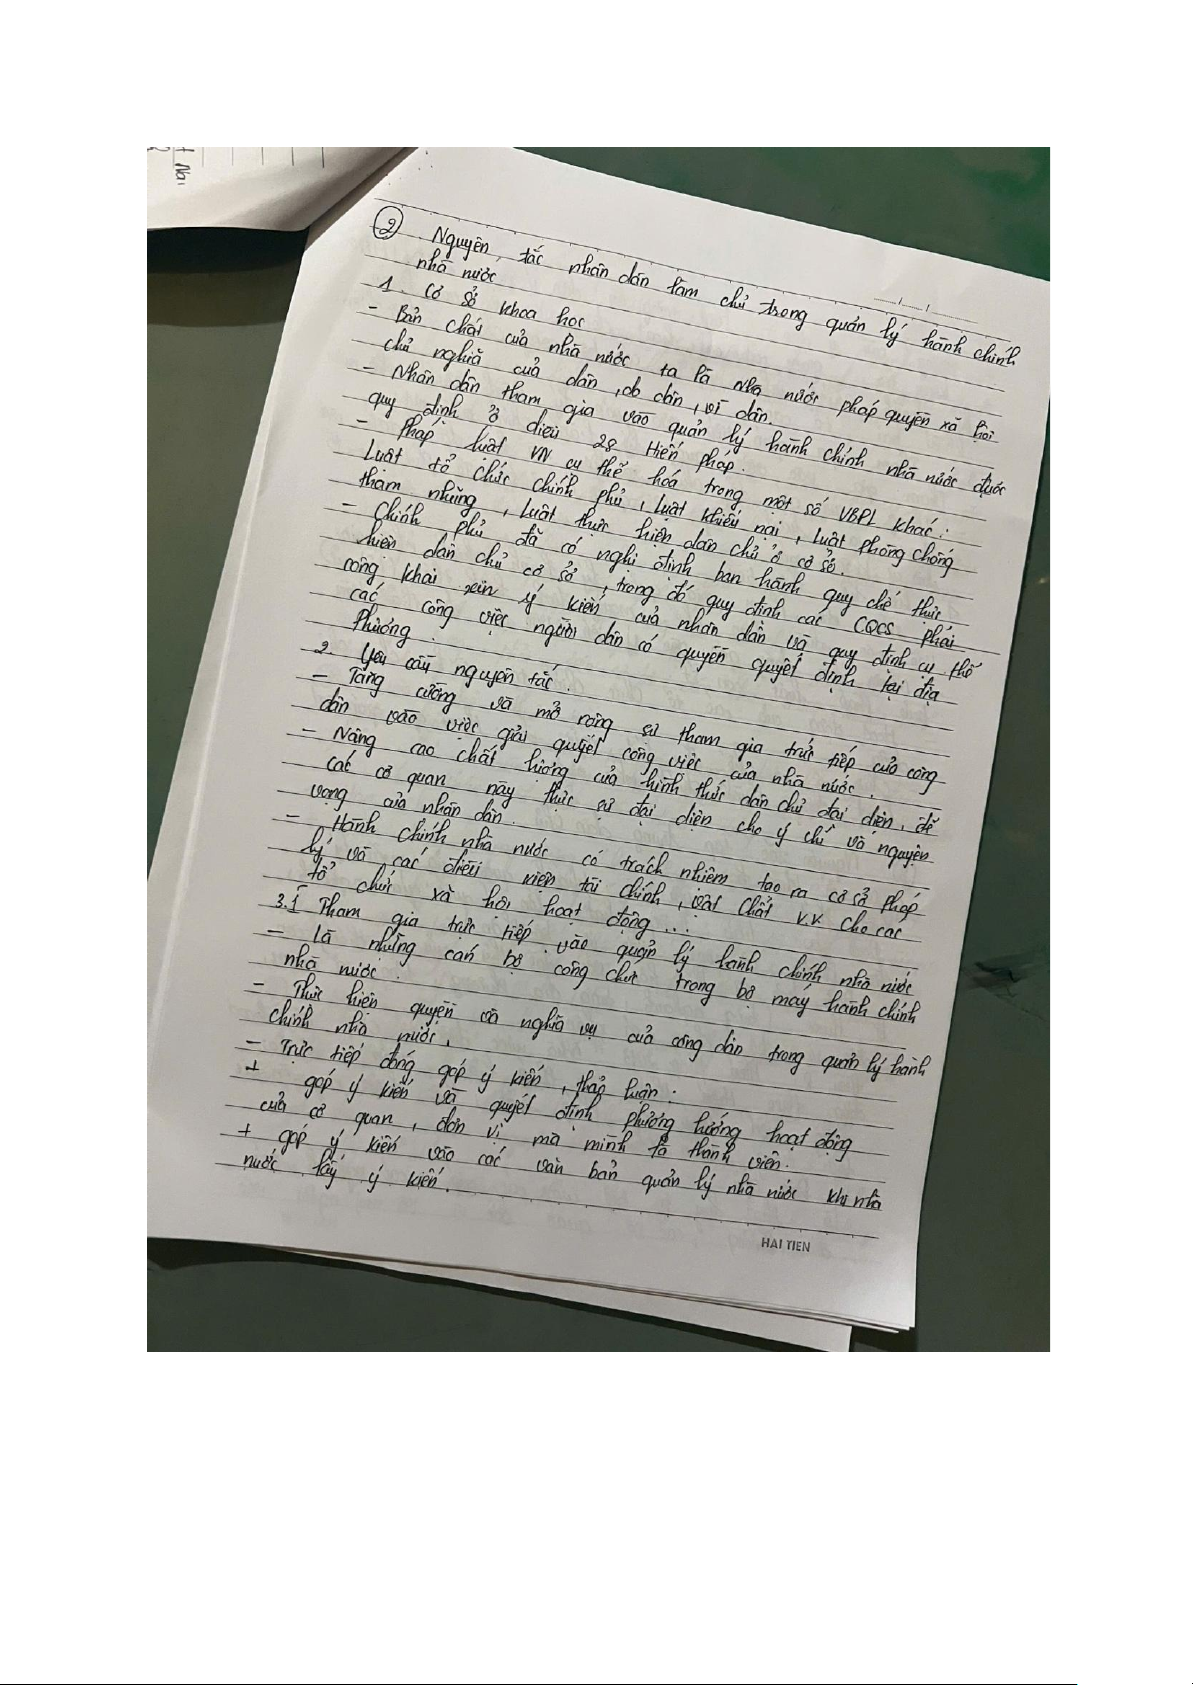 ② Nguyên tắc nhân dân làm chủ trong quản lý hành chính
nhà nước
1. Cơ sở khoa học
- Bản chất của nhà nước ta là nhà nước pháp quyền xã hội
chủ nghĩa của dân, do dân, vì dân.
- Nhân dân tham gia vào quản lý hành chính nhà nước được
quy định ở điều 28 Hiến pháp.
- Pháp luật VN cụ thể hoá trong một số VBPL khác:
Luật tổ chức chính phủ, luật khiếu nại, luật phòng chống
tham nhũng, Luật thực hiện dân chủ ở cơ sở.
- Chính phủ đã có nghị định ban hành quy chế thực
hiện dân chủ cơ sở, trong đó quy định các CQCS phải
công khai xin ý kiến của nhân dân và quy định cụ thể
các công việc người dân có quyền quyết định tại địa
Phương.
2. Yêu cầu nguyên tắc.
- Tăng cường và mở rộng sự tham gia trực tiếp của công
dân vào việc giải quyết công việc của nhà nước.
- Nâng cao chất lượng của hình thức dân chủ đại diện, để
các cơ quan này thực sự đại diện cho ý chí và nguyện
vọng của nhân dân.
- Hành chính nhà nước có trách nhiệm tạo ra cơ sở pháp
lý và các điều kiện tài chính, vật chất v.v cho các
tổ chức xã hội hoạt động...
3.1 Tham gia trực tiếp vào quản lý hành chính nhà nước
- Là những cán bộ công chức trong bộ máy hành chính
nhà nước.
- Thực hiện quyền và nghĩa vụ của công dân trong quản lý hành
chính nhà nước.
- Trực tiếp đóng góp ý kiến, thảo luận:
+ góp ý kiến và quyết định phương hướng hoạt động
của cơ quan, đơn vị mà mình là thành viên.
+ góp ý kiến vào các văn bản quản lý nhà nước khi nhà
nước lấy ý kiến.
HẢI TIẾN